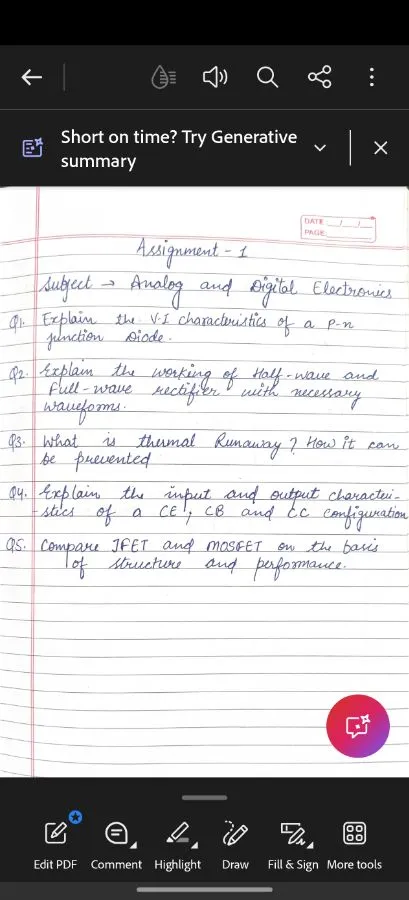 Short on time? Try Generative
summary
DATE __/__/__
PAGE
Assignment - 1
Subject → Analog and Digital Electronics
Q1. Explain the V-I characteristics of a P-n
junction Diode.
Q2. Explain the working of Half-wave and
Full-wave rectifier with necessary
waveforms.
Q3. What is thermal Runaway? How it can
be prevented
Q4. Explain the input and output character-
-stics of a CE, CB and CC configuration
Q5. Compare JFET and MOSFET on the basis
of structure and performance.
Edit PDF Comment Highlight Draw Fill & Sign More tools